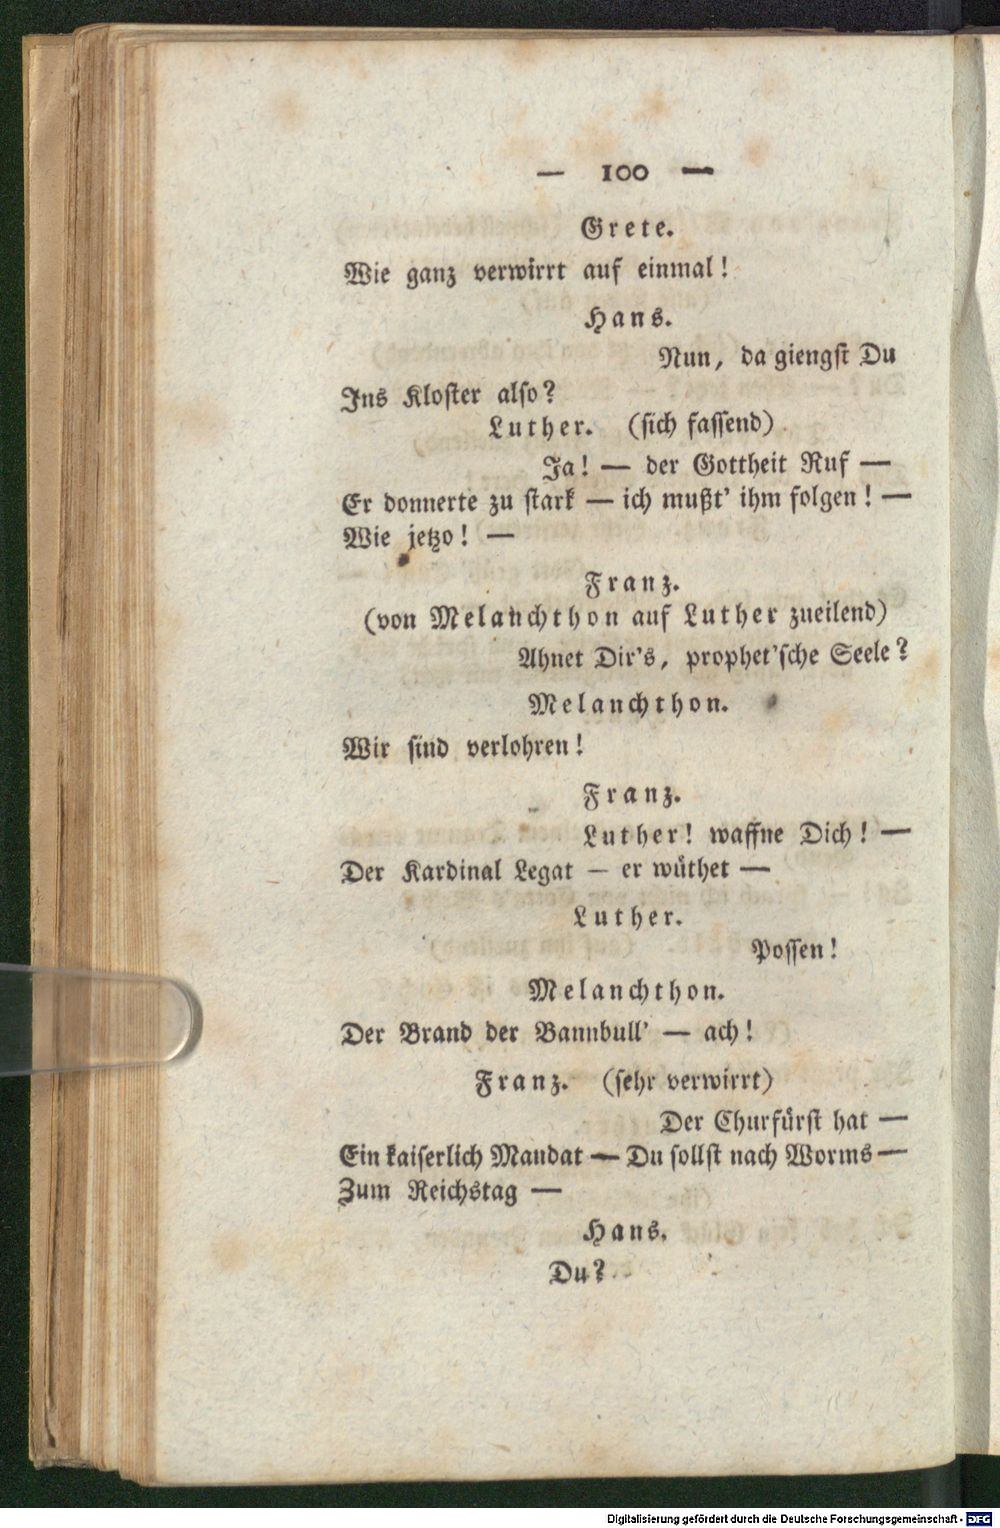 — 100 —
Grete.
Wie ganz verwirrt auf einmal!
Hans.
Nun, da giengst Du
Ins Kloster also?
Luther. (sich fassend)
Ja! — der Gottheit Ruf —
Er donnerte zu stark — ich mußt' ihm folgen! —
Wie jetzo! —
Franz.
(von Melanchthon auf Luther zueilend)
Ahnet Dir's, prophet'sche Seele?
Melanchthon.
Wir sind verlohren!
Franz.
Luther! waffne Dich! —
Der Kardinal Legat — er wüthet —
Luther.
Possen!
Melanchthon.
Der Brand der Bannbull' — ach!
Franz. (sehr verwirrt)
Der Churfürst hat —
Ein kaiserlich Mandat — Du sollst nach Worms —
Zum Reichstag —
Hans.
Du?
Digitalisierung gefördert durch die Deutsche Forschungsgemeinschaft - DFG